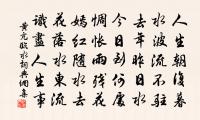 人生朝復暮
水波流不駐
去年昨日水
今日到何處
惆悵雨殘花
嫣紅隨水去
花落水東流
識盡人生事
黃亢臨水詞典網集